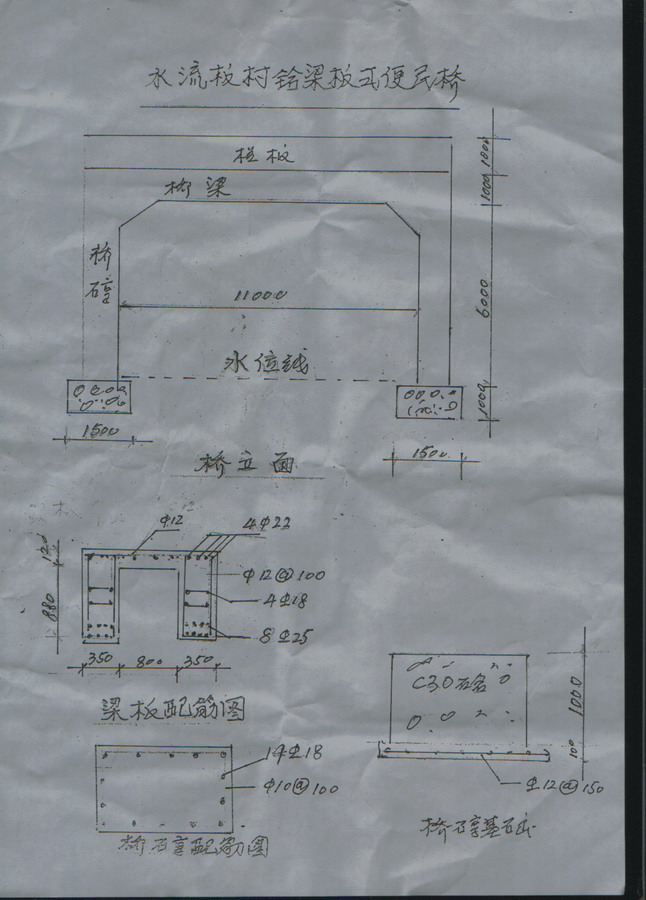 水流板村砼梁板式便民桥
栏板
桥梁
桥墩
1000
1000
6000
1000
11000
水位线
1500
1500
桥立面
Φ12
4Φ22
120
880
Φ12@100
4Φ18
8Φ25
350
800
350
梁板配筋图
14Φ18
Φ10@100
桥墩配筋图
C30砼
1000
100
Φ12@150
桥墩基础